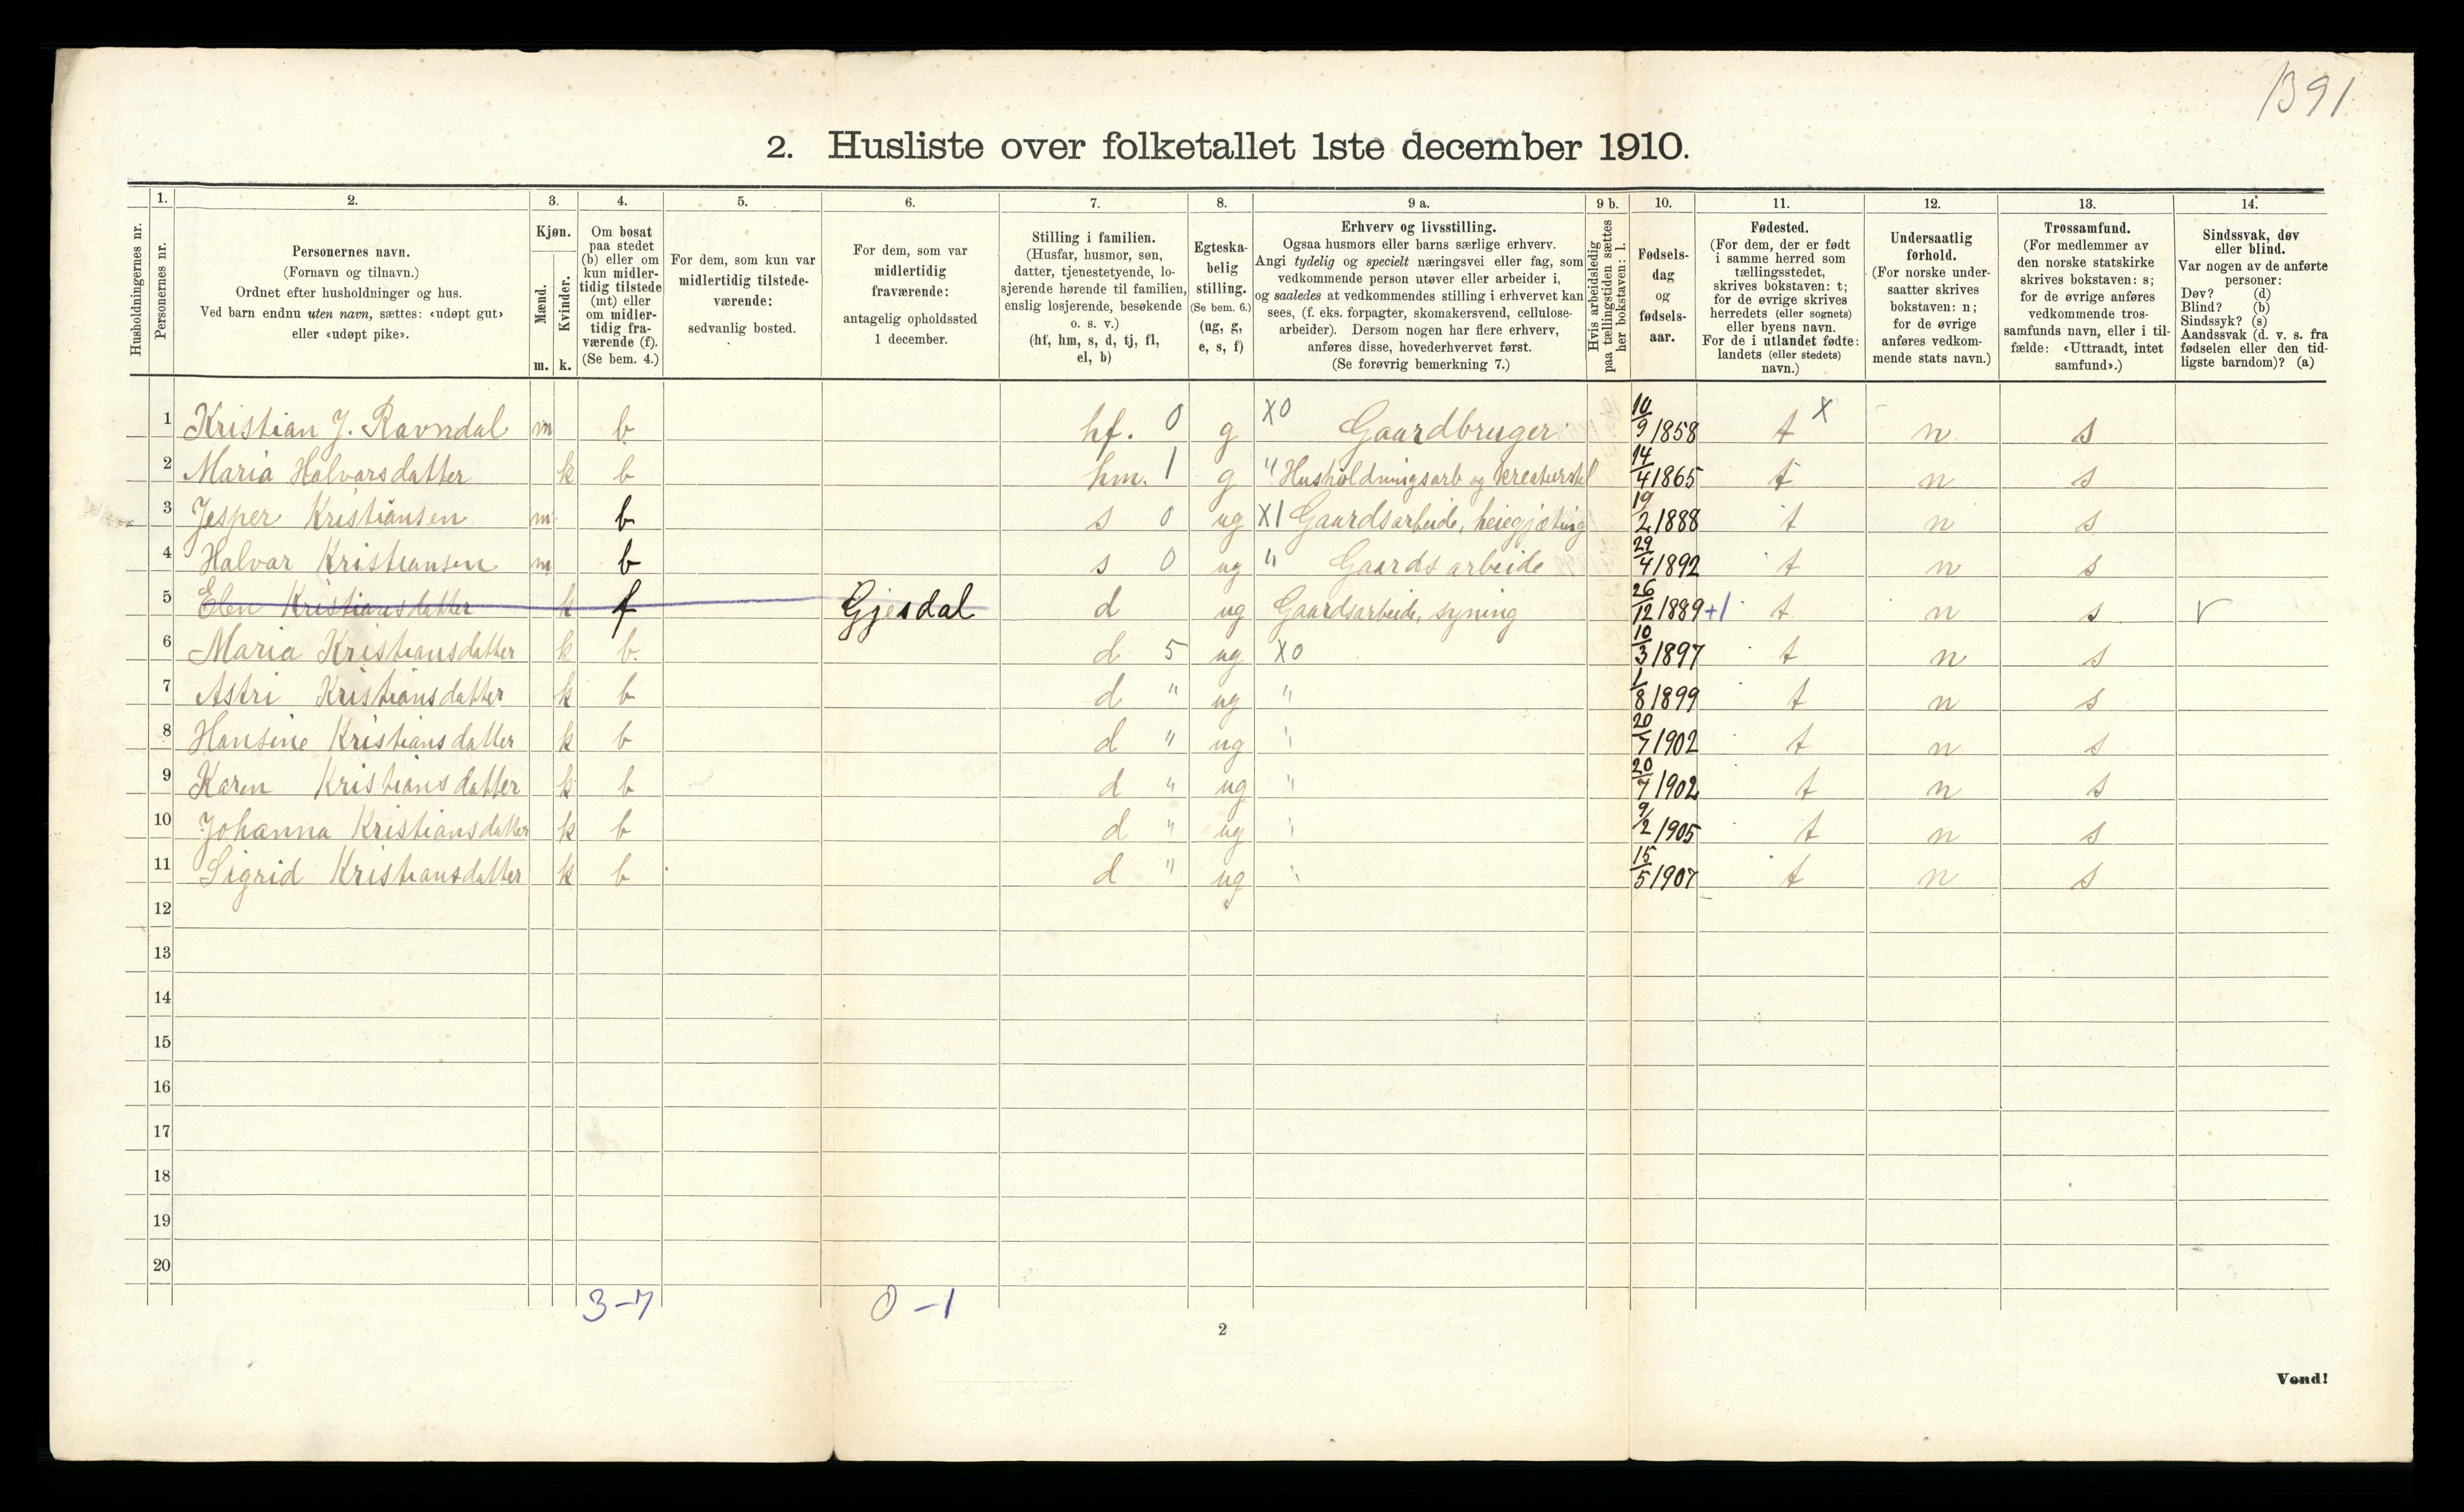 B91
2. Husliste over folketallet 1ste december 1910.
Husholdningernes nr.
1.
Personernes nr.
2.
Personernes navn.
(Fornavn og tilnavn.)
Ordnet efter husholdninger og hus.
Ved barn endnu uten navn, sættes: «udøpt gut»
eller «udøpt pike».
3.
Kjøn.
Mænd.
Kvinder.
m. k.
4.
Om bosat
paa stedet
(b) eller om
kun midler-
tidig tilstede
(mt) eller
om midler-
tidig fra-
værende (f).
(Se bem. 4.)
5.
For dem, som kun var
midlertidig tilstede-
værende:
sedvanlig bosted.
6.
For dem, som var
midlertidig
fraværende:
antagelig opholdssted
1 december.
7.
Stilling i familien.
(Husfar, husmor, søn,
datter, tjenestetyende, lo-
sjerende hørende til familien,
enslig losjerende, besøkende
o. s. v.)
(hf, hm, s, d, tj, fl,
el, b)
8.
Egteska-
belig
stilling.
(Se bem. 6.)
(ug, g,
e, s, f)
9 a.
Erhverv og livsstilling.
Ogsaa husmors eller barns særlige erhverv.
Angi tydelig og specielt næringsvei eller fag, som
vedkommende person utøver eller arbeider i,
og saaledes at vedkommendes stilling i erhvervet kan
sees, (f. eks. forpagter, skomakersvend, cellulose-
arbeider). Dersom nogen har flere erhverv,
anføres disse, hovederhvervet først.
(Se forøvrig bemerkning 7.)
9 b.
Hvis arbeidsledig
paa tællingstiden sættes
her bokstaven: l.
10.
Fødsels-
dag
og
fødsels-
aar.
11.
Fødested.
(For dem, der er født
i samme herred som
tællingsstedet,
skrives bokstaven: t;
for de øvrige skrives
herredets (eller sognets)
eller byens navn.
For de i utlandet fødte:
landets (eller stedets)
navn.)
12.
Undersaatlig
forhold.
(For norske under-
saatter skrives
bokstaven: n;
for de øvrige
anføres vedkom-
mende stats navn.)
13.
Trossamfund.
(For medlemmer av
den norske statskirke
skrives bokstaven: s;
for de øvrige anføres
vedkommende tros-
samfunds navn, eller i til-
fælde: «Uttraadt, intet
samfund».)
14.
Sindssvak, døv
eller blind.
Var nogen av de anførte
personer:
Døv? (d)
Blind? (b)
Sindssyk? (s)
Aandssvak (d. v. s. fra
fødselen eller den tid-
ligste barndom)? (a)
1 Kristian J. Ravndal m b hf. 0 g X0 Gaardbruger 10/9 1858 t X n s
2 Maria Halvorsdatter k b hm. 1 g " Husholdningsarb og kreaturstel 14/4 1865 t n s
3 Jesper Kristiansen m b s 0 ug X1 Gaardsarbeide, heiegjæting 19/2 1888 t n s
4 Halvar Kristiansen m b s 0 ug " Gaardsarbeide 29/4 1892 t n s
5 Elen Kristiansdatter k f Gjesdal d ug Gaardsarbeide, syning 26/12 1889 +1 t n s v
6 Maria Kristiansdatter k b. d 5 ug X0 10/3 1897 t n s
7 Astri Kristiansdatter k b d " ug " 1/8 1899 t n s
8 Hansine Kristiansdatter k b d " ug " 20/7 1902 t n s
9 Karen Kristiansdatter k b d " ug " 20/7 1902 t n s
10 Johanna Kristiansdatter k b d " ug " 9/2 1905 t n s
11 Sigrid Kristiansdatter k b d " ug " 15/5 1907 t n s
12
13
14
15
16
17
18
19
20
3-7 0-1
2
Vend!